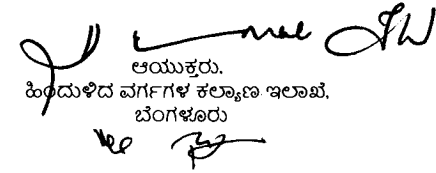 ಆಯುಕ್ತರು.
ಹಿಂದುಳಿದ ವರ್ಗಗಳ ಕಲ್ಯಾಣ ಇಲಾಖೆ,
ಬೆಂಗಳೂರು